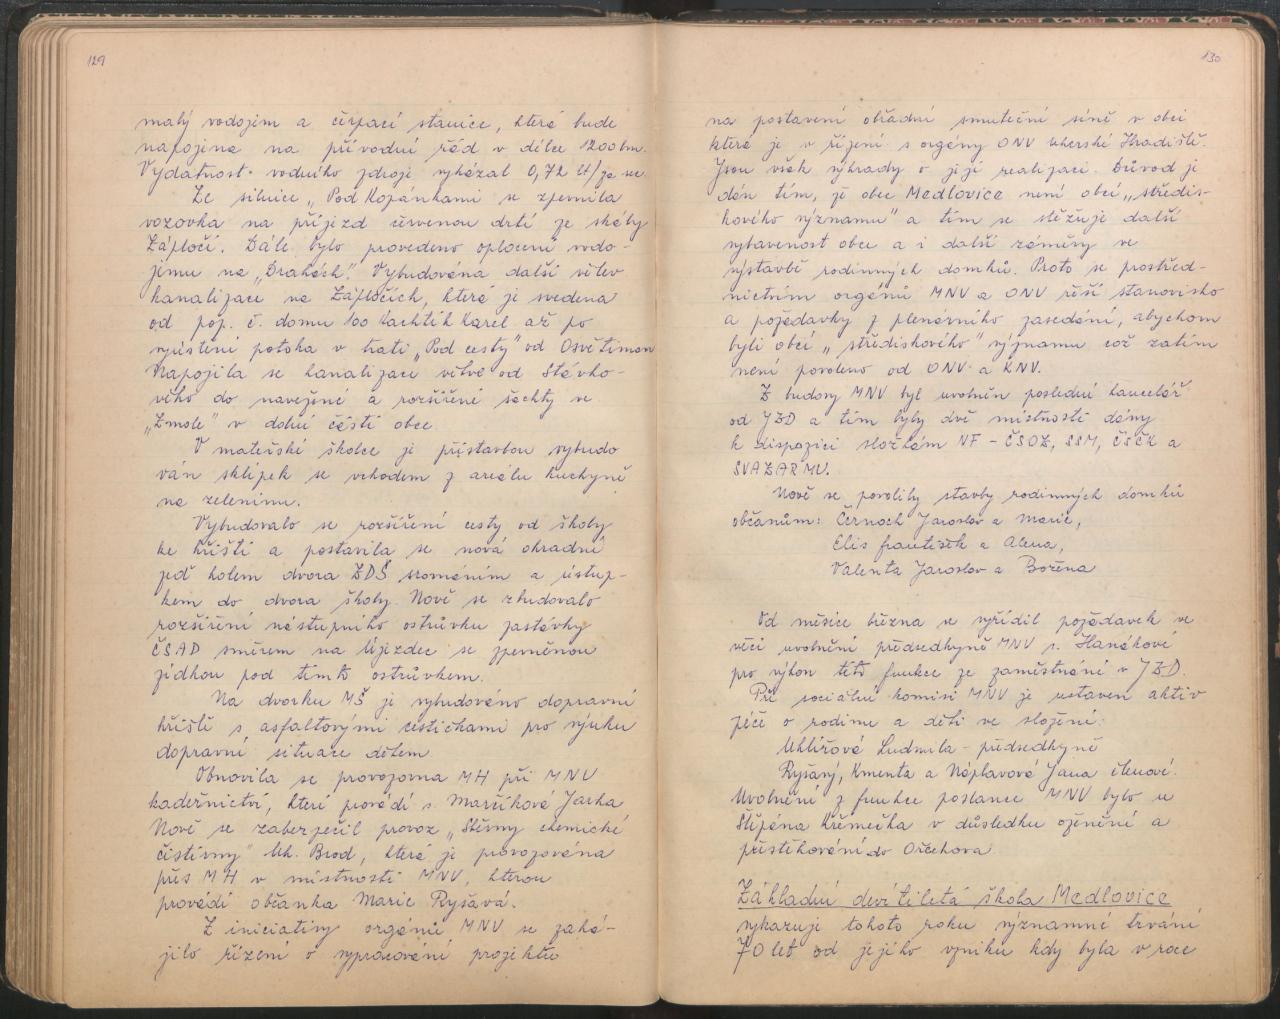 129
malý vodojem a čerpací stanice, která bude
napojena na přívodní řád v délce 1200 bm.
Vydatnost vodního zdroje vykázal 0,72 lt/za sec.
Ze silnice „Pod Kopánkami se zpevnila
vozovka na příjezd červenou drtí ze skály
Zápločí. Dále bylo provedeno oplocení vodo-
jemu na „Drahách". Vybudována další větev
kanalizace na Zápločích, která je svedena
od pop. č. domu 100 Machtík Karel až po
vyústění potoka v trati „Pod cesty" od Osvětiman
Napojila se kanalizace větve od Stávko-
vého do navezené a rozšířené šachty ve
„Zmole" v dolní části obce.
V mateřské školce je přístavbou vybudo
ván sklípek se vchodem z areálu kuchyně
na zeleninu.
Vybudovalo se rozšíření cesty od školy
ke hřišti a postavila se nová ohradní
zeď kolem dvora ZDŠ srovnáním a ústup-
kem do dvora školy. Nově se zbudovalo
rozšíření nástupního ostrůvku zastávky
ČSAD směrem na Újezdec se zpevněnou
zídkou pod tímto ostrůvkem.
Na dvorku MŠ je vybudováno dopravní
hřiště s asfaltovými cestičkami pro výuku
dopravní situace dětem.
Obnovila se provozovna MH při MNV
kadeřnictví, které provádí s. Marčíková Jarka
Nově se zabezpečil provoz „Sběrny chemické
čistírny" Uh. Brod, která je provozována
přes MH v místnosti MNV, kterou
provádí občanka Marie Ryšavá.
Z iniciativy orgánů MNV se zahá-
jilo řízení o vypracování projektu
130
na postavení obřadní smuteční síně v obci
která je v řízení s orgány ONV Uherské Hradiště.
Jsou však výhrady o její realizaci. Důvod je
dán tím, že obec Medlovice není obcí „středis-
kového významu" a tím se stěžuje další
vybavenost obce a i další záměry ve
výstavbě rodinných domků. Proto se prostřed-
nictvím orgánů MNV a ONV řeší stanovisko
a požadavky z plenárního zasedání, abychom
byli obcí „střediskového" významu což zatím
není povoleno od ONV a KNV.
Z budovy MNV byl uvolněn poslední kancelář
od JZD a tím byly dvě místnosti dány
k dispozici složkám NF - ČSOŽ, SSM, ČSČK a
SVAZARMU.
Nově se povolily stavby rodinných domků
občanům: Černoch Jaroslav a Marie,
Elis František a Alena,
Valenta Jaroslav a Božena
Od měsíce března se vyřídil požadavek ve
věci uvolnění předsedkyně MNV s. Hanákové
pro výkon této funkce ze zaměstnání v JZD.
Při sociální komisi MNV je ustaven aktiv
péče o rodinu a děti ve složení:
Uhlířová Ludmila - předsedkyně
Ryšavý, Kmenta a Náplavová Jana členové.
Uvolnění z funkce poslance MNV bylo u
Štěpána Křemečka v důsledku oženění a
přestěhování do Ořechova
Základní devítiletá škola Medlovice
vykazuje tohoto roku významné trvání
70 let od jejího vzniku kdy byla v roce